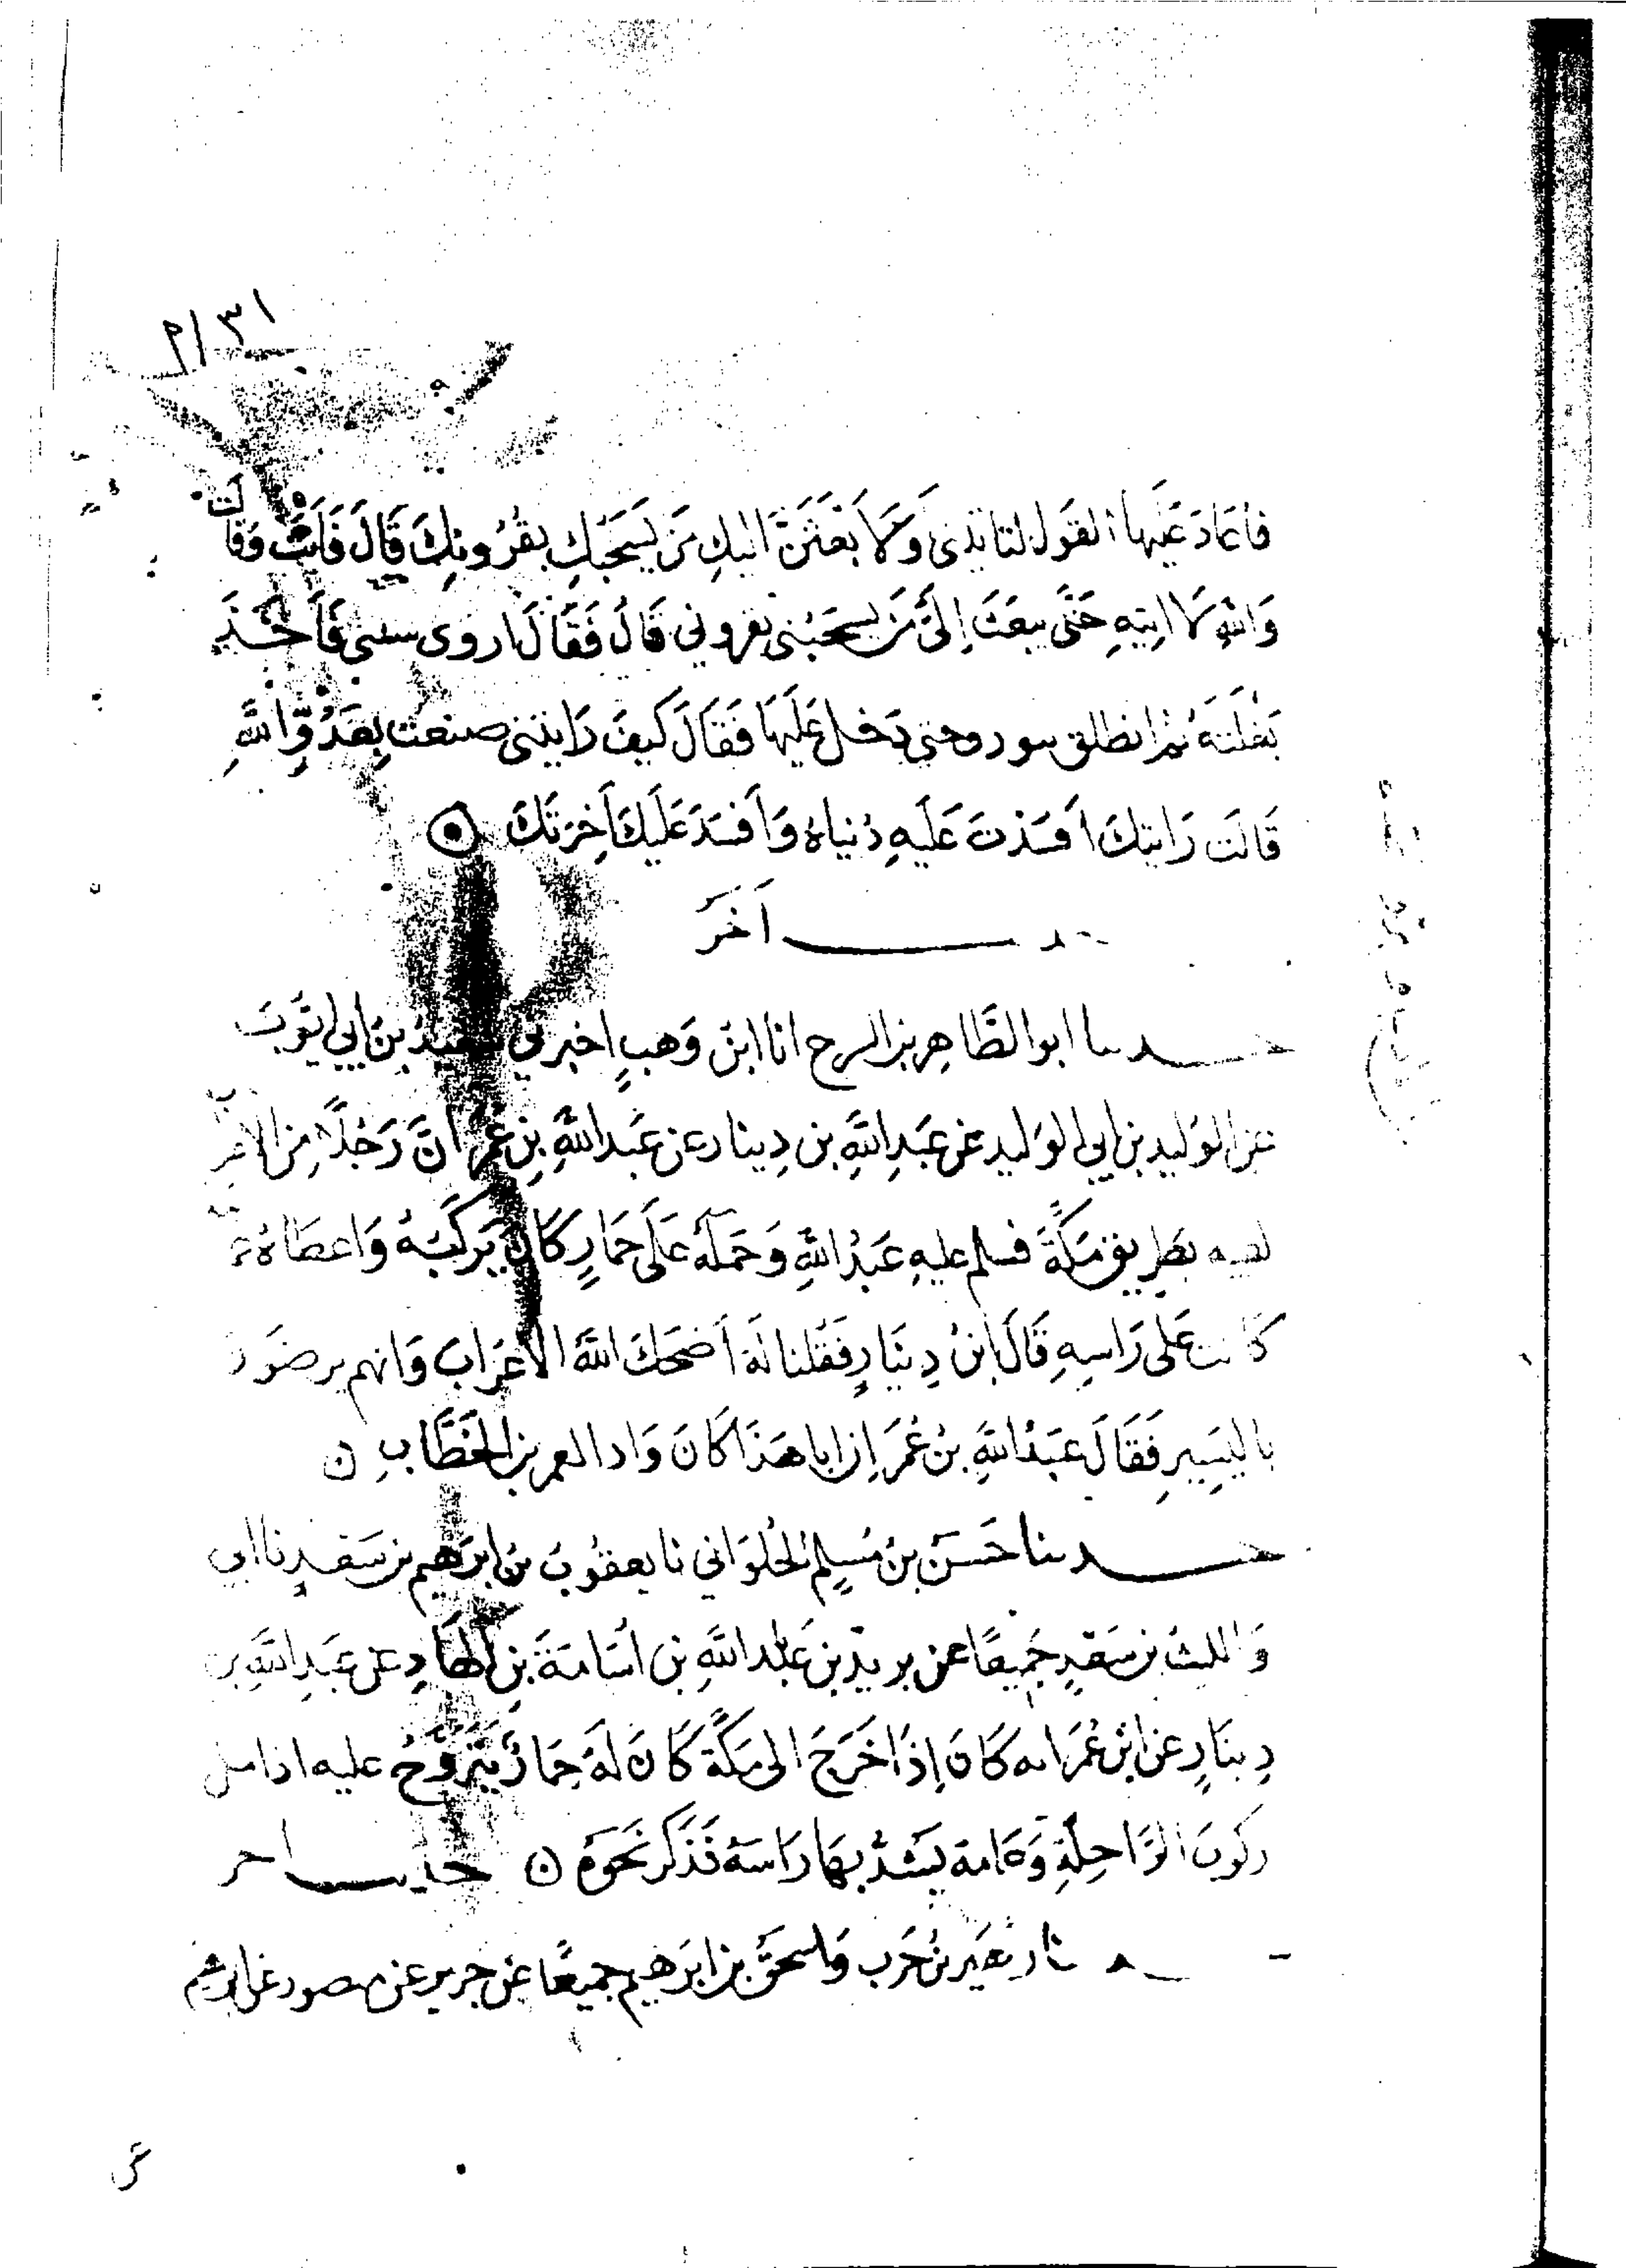 ٣١/٢
فاعاد عليها القول لتاتيني او لابعثن اليك من يسحبك بقرونك قال فابت وقالت
والله لا اتيه حتى يبعث الي من يسحبني بقروني قال فقال اروني سبتي فاخذ
نعليه ثم انطلق يتوذف حتى دخل عليها فقال كيف رايتني صنعت بعدو الله
قالت رايتك افسدت عليه دنياه وافسد عليك اخرتك
اخر
حدثنا ابو الطاهر بن السرح انا ابن وهب اخبرني سعيد بن ابي ايوب
عن الوليد بن ابي الوليد عن عبد الله بن دينار عن عبد الله بن عمر ان رجلا من الاعراب
لقيه بطريق مكة فسلم عليه عبد الله وحمله على حمار كان يركبه واعطاه
كانت على راسه قال ابن دينار فقلنا له اصلحك الله الاعراب وانهم يرضون
باليسير فقال عبد الله بن عمر ان ابا هذا كان وادا لعمر بن الخطاب ن
حدثنا حسن بن الحلواني نا يعقوب بن ابرهيم بن سعد نا ابي
والليث بن سعد جميعا عن يزيد بن عبد الله بن اسامة بن الهاد عن عبد الله بن
دينار عن ابن عمر انه كان اذا خرج الى مكة كان له حمار يتروح عليه اذا مل
ركوب الراحلة وعمامة يشد بها راسه فذكر نحوه ن حديث اخر
نا زهير بن حرب واسحق بن ابرهيم جميعا عن جرير عن منصور عن ابرهيم